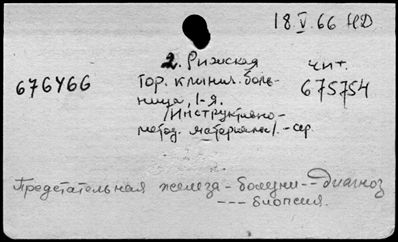 18.V.66 НД
2. Рижская
чит.
676466
гор. клинич. боль-
675754
ница, 1-я.
/Инструктивно-
метод. материалы/. - сер.
Предстательная железа - болезни -- диагноз
--- биопсия.